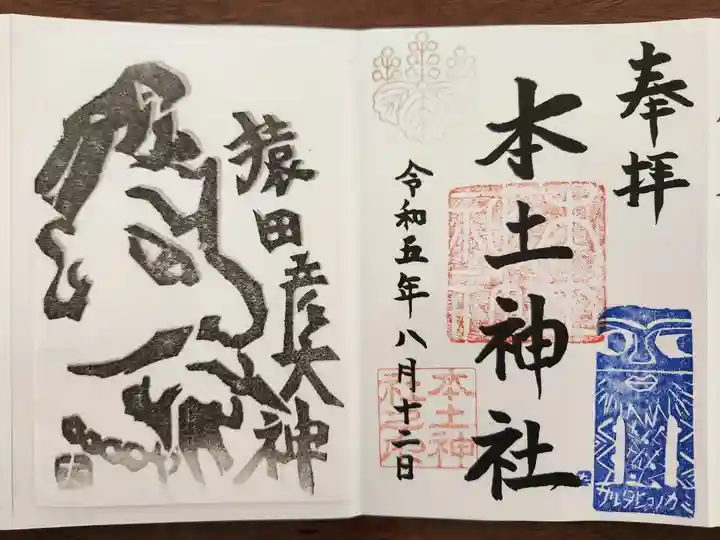 奉拝
本土神社
令和五年八月十二日
本土神
サルタヒコノカミ
猿田彦大神